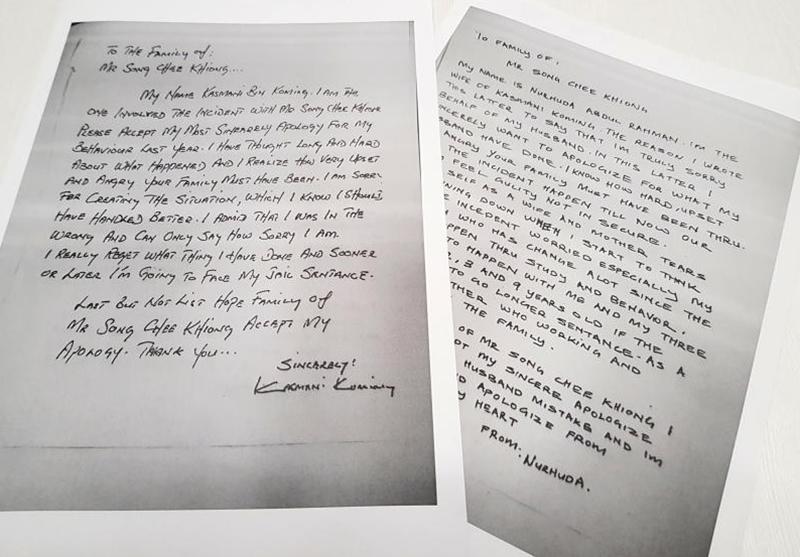 TO THE FAMILY OF:
MR SONG CHEE KHIONG...
MY NAME KASMANI BIN KOMING. I AM THE
ONE INVOLVED THE INCIDENT WITH MR SONG CHEE KHIONG
PLEASE ACCEPT MY MOST SINCEARLY APOLOGY FOR MY
BEHAVIOUR LAST YEAR. I HAVE THOUGHT LONG AND HARD
ABOUT WHAT HAPPENED AND I REALIZE HOW VERY UPSET
AND ANGRY YOUR FAMILY MUST HAVE BEEN. I AM SORRY
FOR CREATING THE SITUATION, WHICH I KNOW I SHOULD
HAVE HANDLED BETTER. I ADMID THAT I WAS IN THE
WRONG AND CAN ONLY SAY HOW SORRY I AM.
I REALLY REGET WHAT THING I HAVE DONE AND SOONER
OR LATER I'M GOING TO FACE MY JAIL SANTANCE.
LAST BUT NOT LIST HOPE FAMILY OF
MR SONG CHEE KHIONG ACCEPT MY
APOLOGY. THANK YOU...
SINCARELY!
KASMANI KOMING
TO FAMILY OF:
MR SONG CHEE KHIONG
MY NAME IS NURHUDA ABDUL RAHMAN. I'M THE
WIFE OF KASMANI KOMING. THE REASON I WROTE
THIS LATTER TO SAY THAT I'M TRULY SORRY
BEHALF OF MY HUSBAND. IN THIS LATTER I
SINCERELY WANT TO APOLOGIZE FOR WHAT MY
HAVE DONE. I KNOW HOW HARD/UPSET
ANGRY YOUR FAMILY MUST HAVE BEEN THRU.
THE INCIDENT HAPPEN TILL NOW OUR
FEEL GUILTY NOT IN SECURE.
AS A WIFE AND MOTHER TEARS
DOWN WHEN I START TO THINK
INCEDENT WORRIED ESPECIALLY MY
WHO HAS CHANGE ALOT SINCE THE
THRU STUDY AND BEHAVOR.
TO HAPPEN WITH ME AND MY THREE
3 AND 9 YEARS OLD IF THE
TO GO LONGER SENTANCE. AS A
WHO WORKING AND
THE FAMILY.
OF MR SONG CHEE KHIONG I
MY SINCERE APOLOGIZE
HUSBAND MISTAKE AND IM
APOLOGIZE FROM
HEART
FROM: NURHUDA.